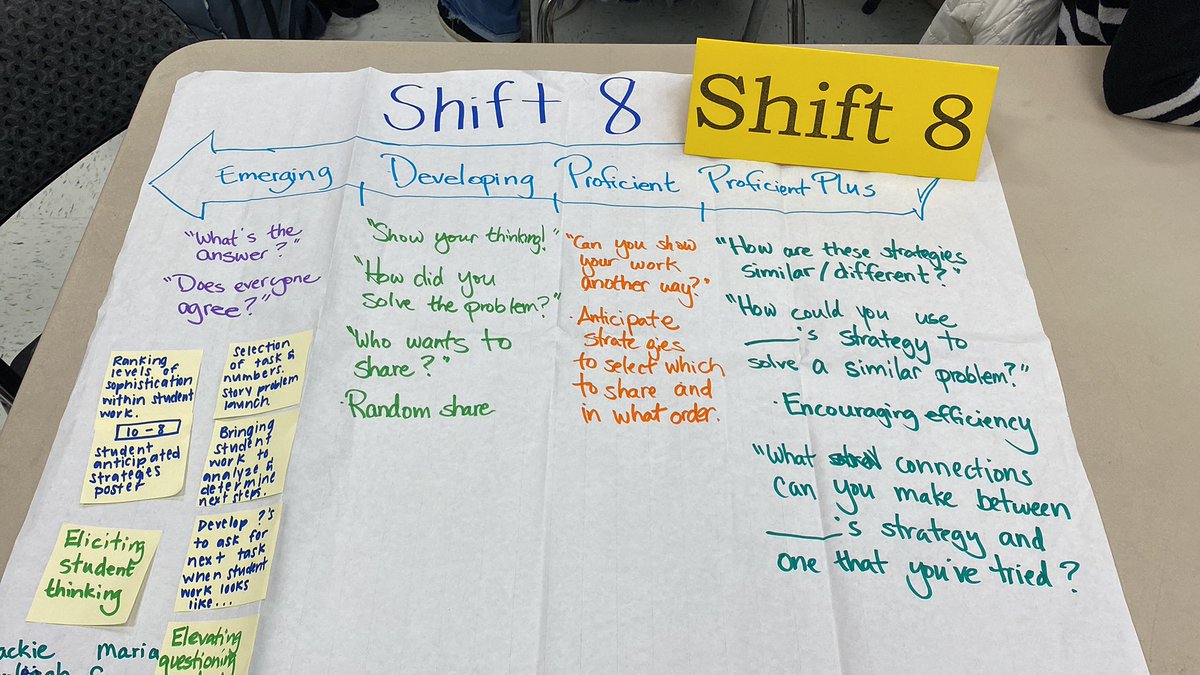 Shift 8
Shift 8
Emerging
Developing
Proficient
Proficient Plus
"What's the
answer?"
"Does everyone
agree?"
"Show your thinking!"
"How did you
solve the problem?"
"Who wants to
share?"
·Random share
"Can you show
your work
another way?"
·Anticipate
strategies
to select which
to share and
in what order.
"How are these strategies
similar/different?"
"How could you use
____'s strategy to
solve a similar problem?"
·Encouraging efficiency
"What connections
can you make between
____'s strategy and
one that you've tried?
Ranking
levels of
sophistication
within student
work.
10-8
student
anticipated
strategies
poster
Selection
of task &
numbers.
story problem
launch
Bringing
student
work to
analyze &
determine
next steps.
Develop ?'s
to ask for
next task
when student
work looks
like...
Eliciting
student
thinking
Elevating
questioning
Maria